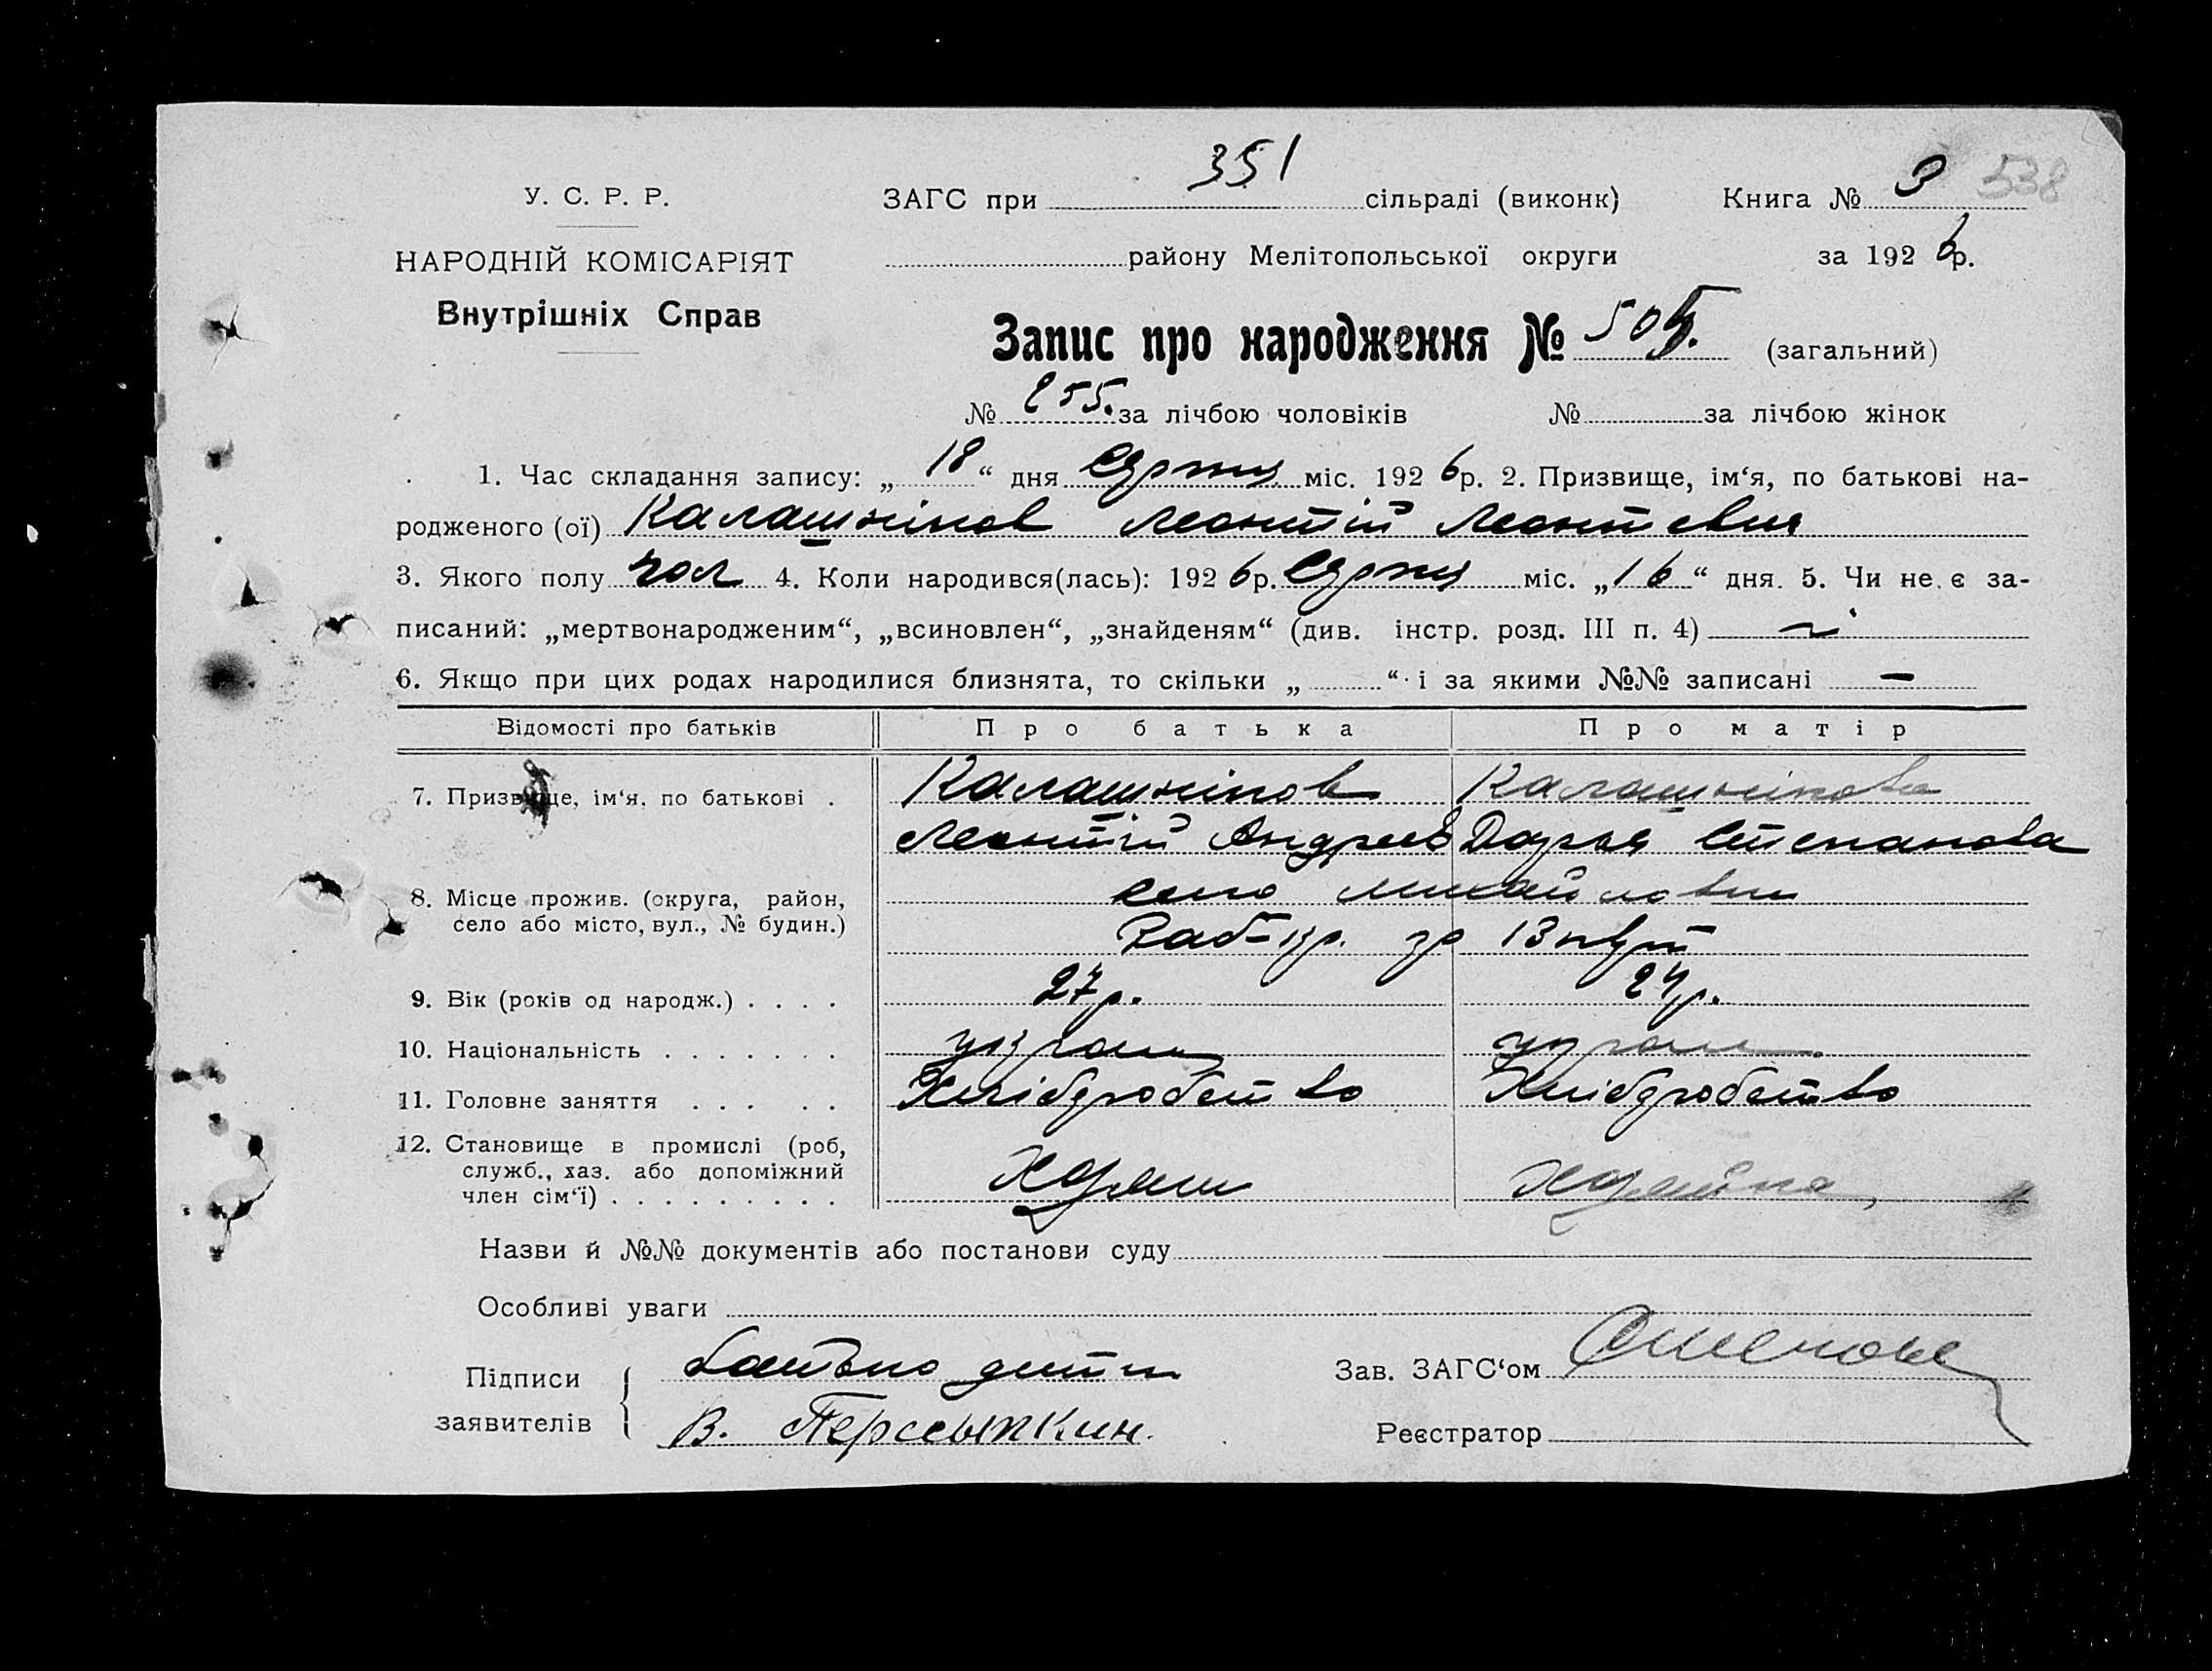 351
У. С. Р. Р. ЗАГС при сільраді (виконк) Книга № 3 538
НАРОДНІЙ КОМІСАРІЯТ району Мелітопольської округи за 1926 р.
Внутрішніх Справ
Запис про народження № 505. (загальний)
№ 255. за лічбою чоловіків № за лічбою жінок
1. Час складання запису: „18“ дня Серпня міс. 1926 р. 2. Призвище, ім‘я, по батькові на-
родженого (ої) Калашніков Леонтій Леонтевич
3. Якого полу чол 4. Коли народився(лась): 1926 р. Серпня міс. „16“ дня. 5. Чи не є за-
писаний: „мертвонародженим“, „всиновлен“, „знайденям“ (див. інстр. розд. III п. 4) ні
6. Якщо при цих родах народилися близнята, то скільки „ “ і за якими №№ записані —
Відомості про батьків Про батька Про матір
7. Призвище, ім‘я, по батькові . Калашніков Калашнікова
Леонтій Андреев Дарья Степанова
8. Місце прожив. (округа, район, село Михайловки
село або місто, вул., № будин.)
9. Вік (років од народж.) . . . . 27 р. 24 р.
10. Національність . . . . . . . україн україн.
11. Головне заняття . . . . . Хлібробство Хлібробство
12. Становище в промислі (роб,
служб., хаз. або допоміжний
член сім‘ї) . . . . . . . . . Хозяин Хозяйка,
Назви й №№ документів або постанови суду
Особливі уваги
Підписи батько дити Зав. ЗАГС‘ом
заявителів В. Перссыпкин. Реєстратор